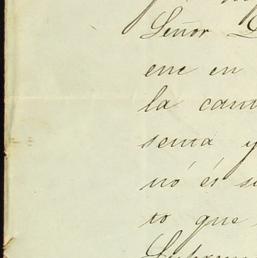 Señor
ene en
la can
senia y
nó és s
to que